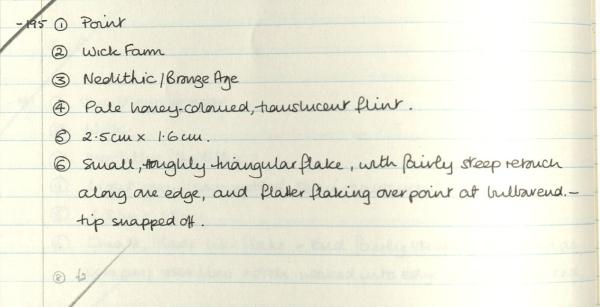 -195 ① Point
② Wick Farm
③ Neolithic/Bronze Age
④ Pale honey-coloured, translucent flint.
⑤ 2.5cm x 1.6cm.
⑥ Small, roughly triangular flake, with fairly steep retouch
along one edge, and flatter flaking over point at bulbar end. –
tip snapped off.
⑧